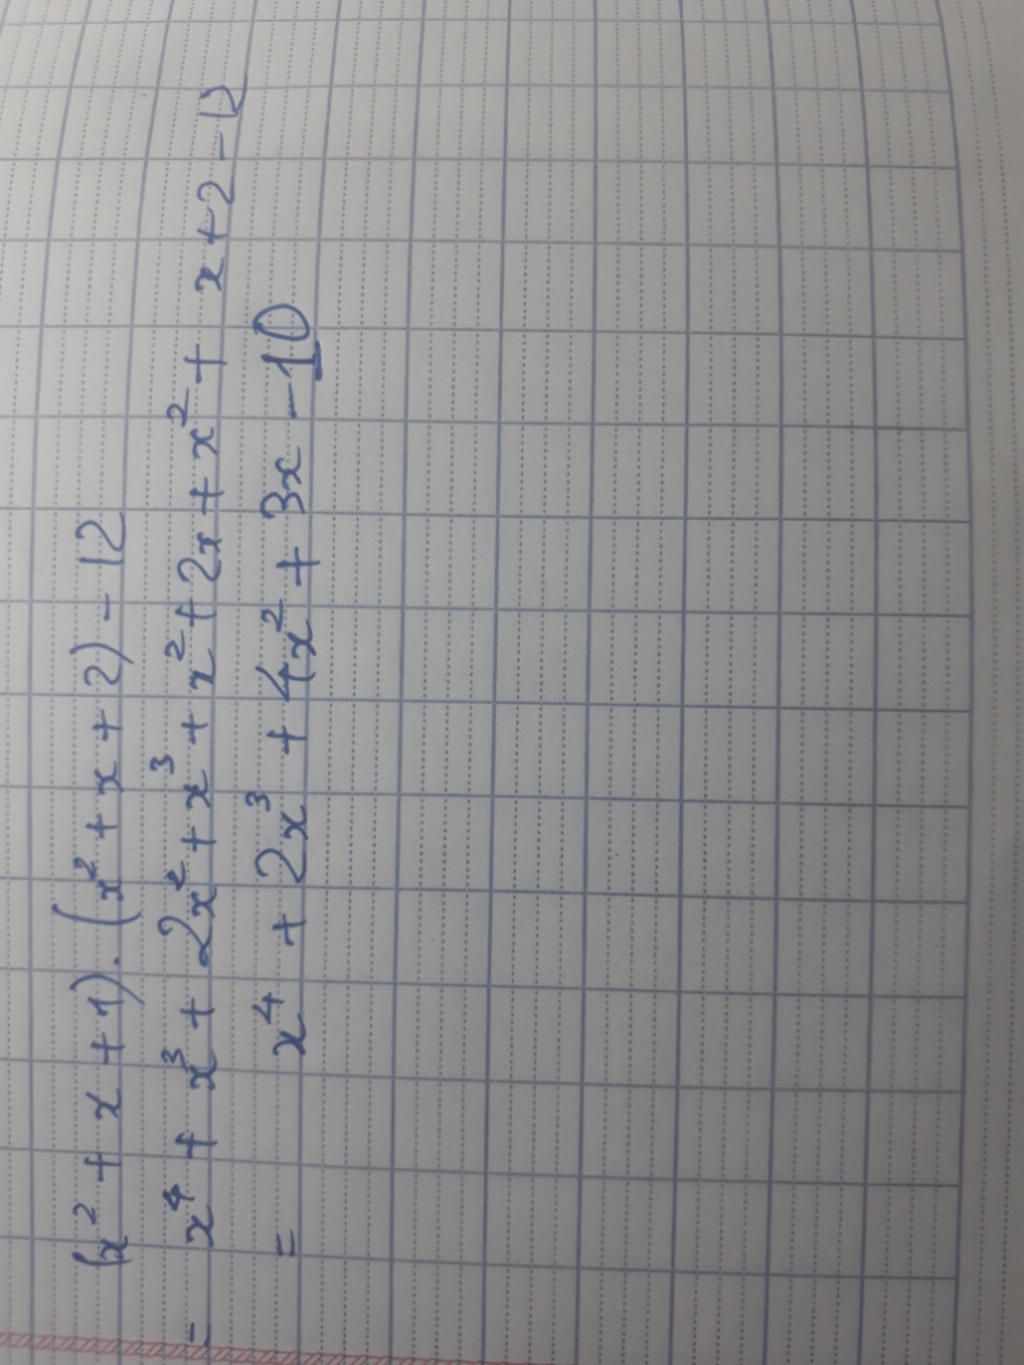 (x² + x + 1). (x² + x + 2) - 12
= x⁴ + x³ + 2x² + x³ + x² + 2x + x² + x + 2 - 12
= x⁴ + 2x³ + 4x² + 3x - 10